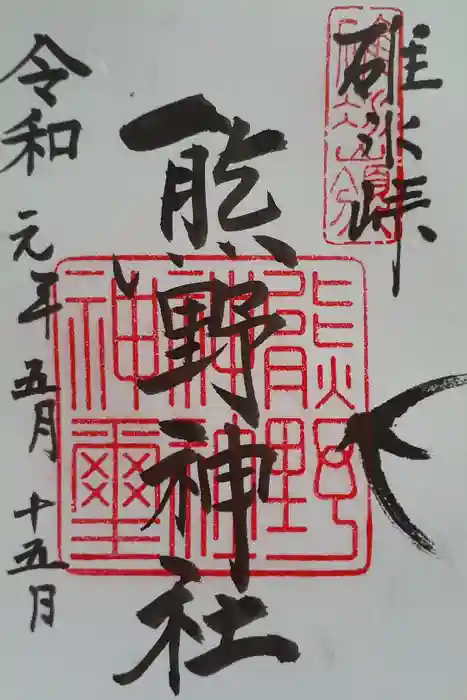 碓氷峠
熊野神社
熊野神社神璽
令和元年五月十五日